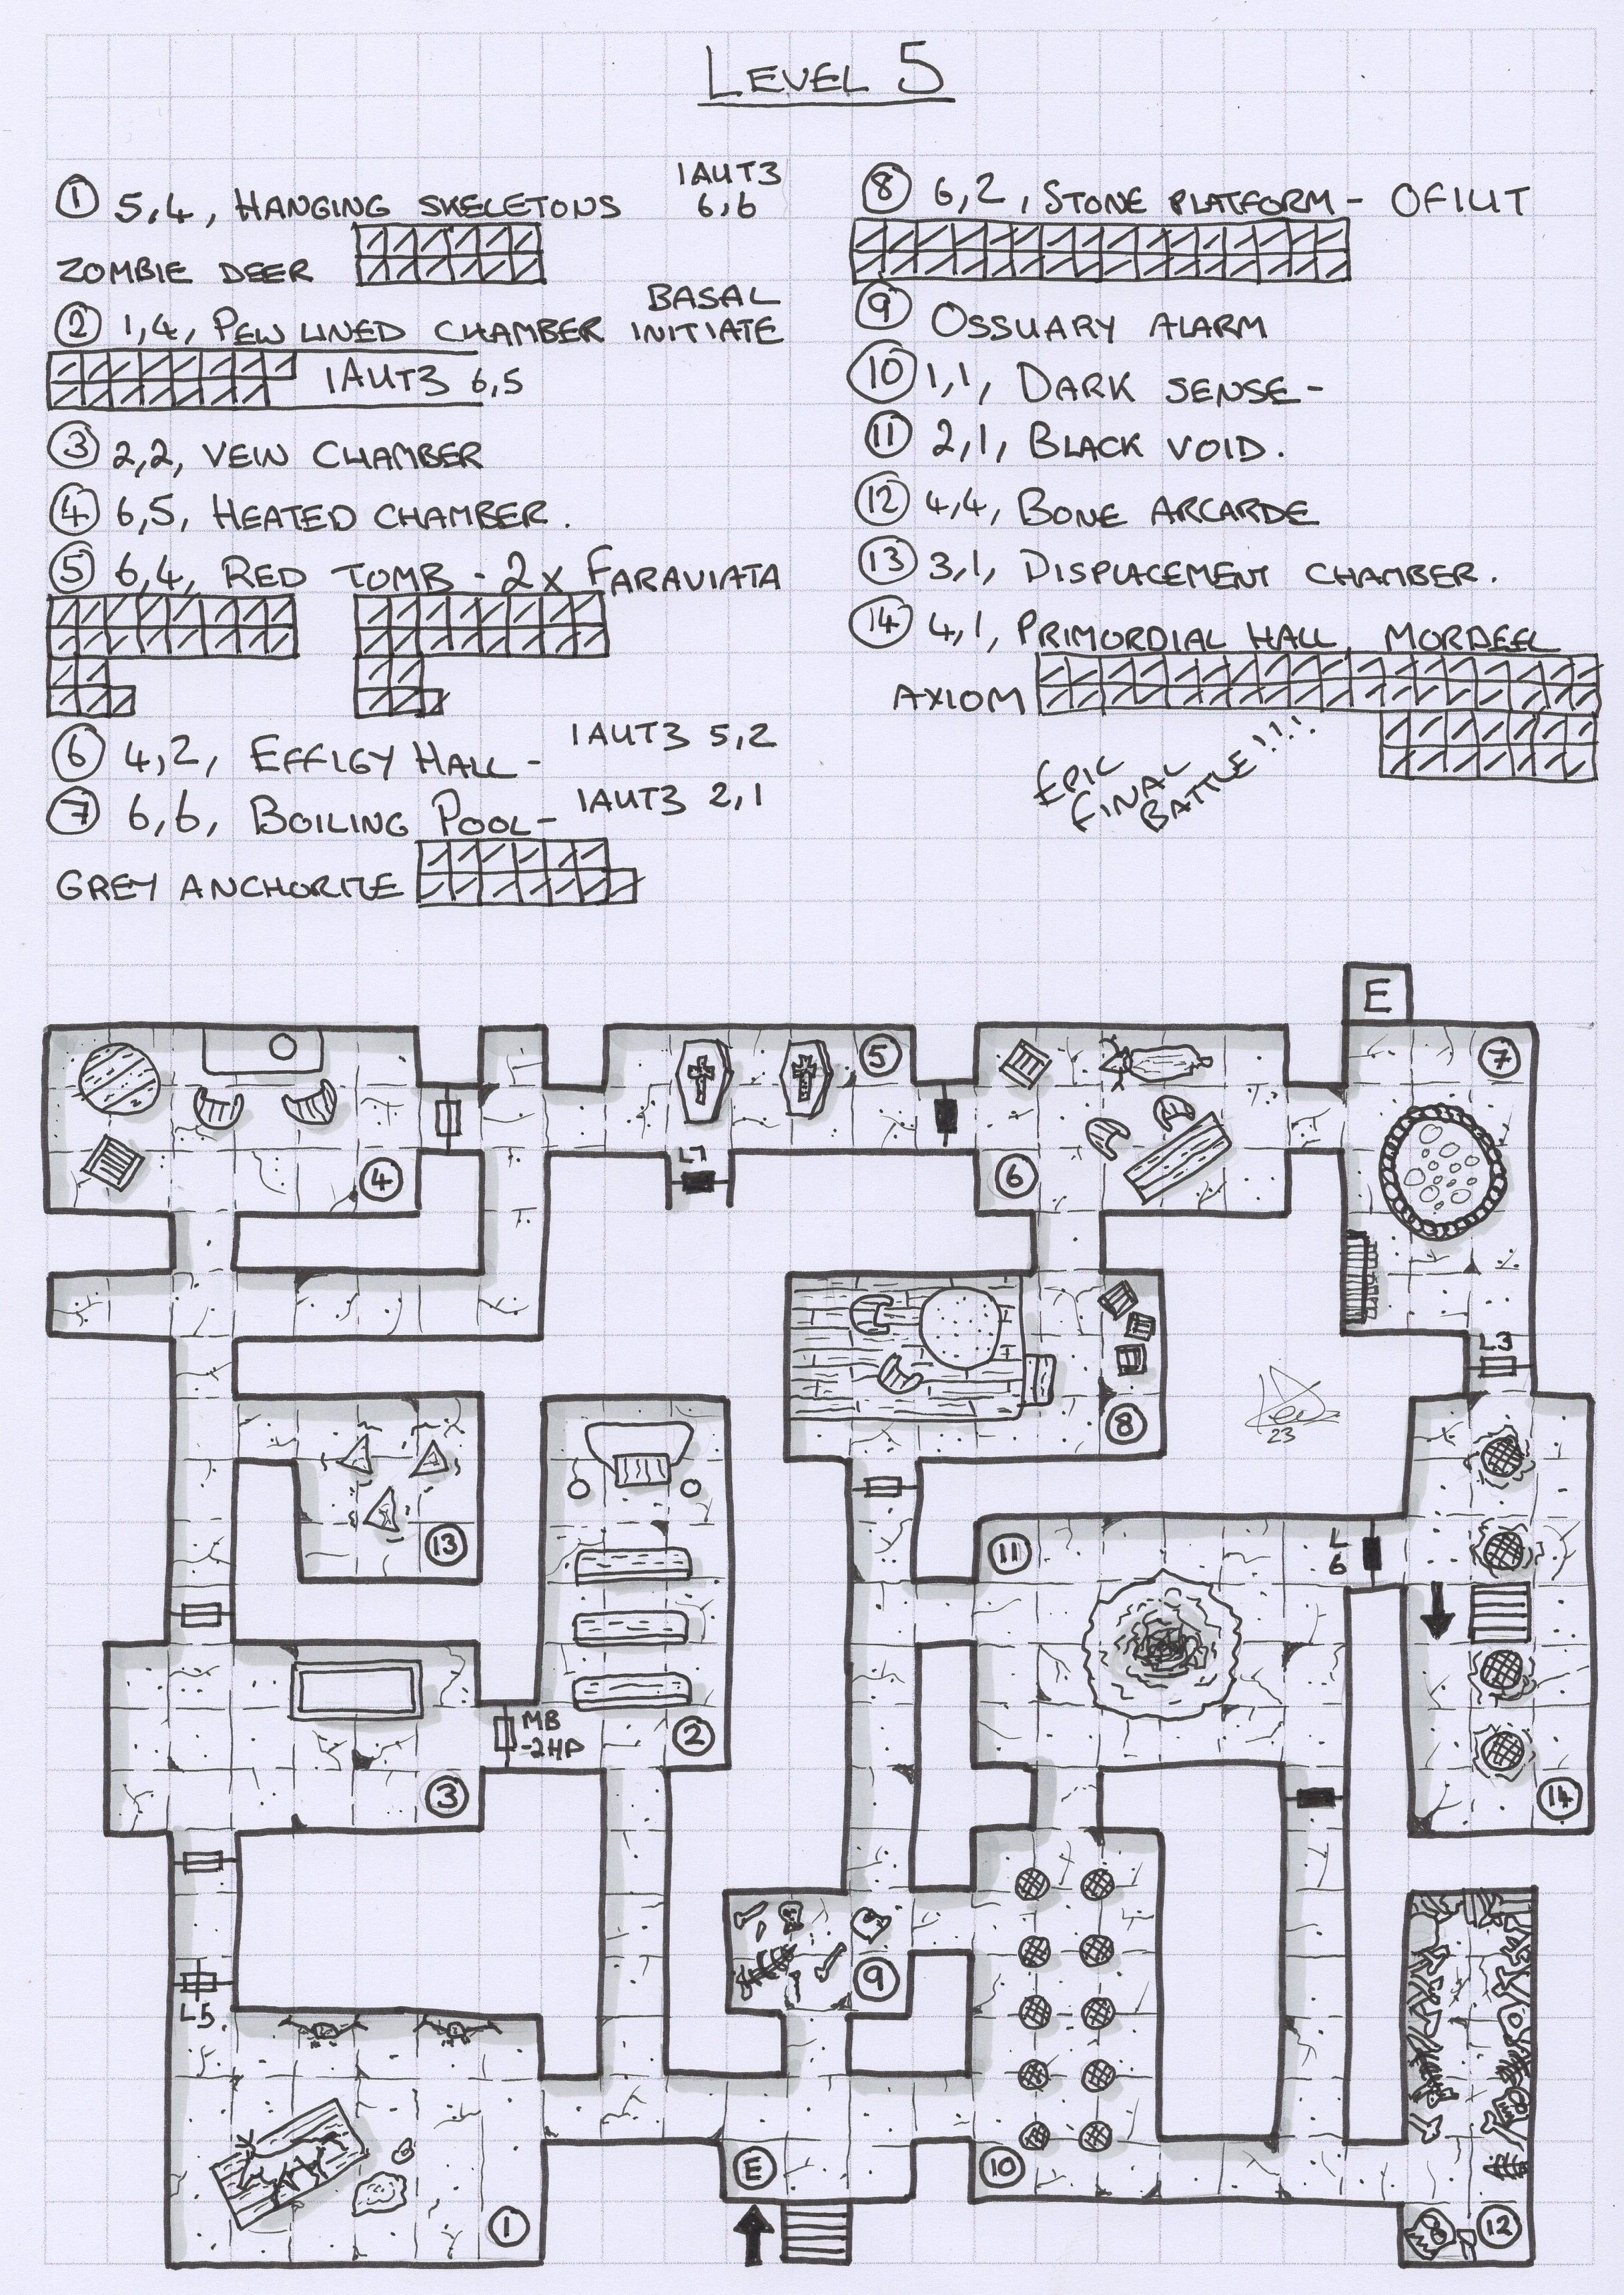 LEVEL 5
① 5,4, HANGING SKELETONS 1AUT3 6,6
ZOMBIE DEER
② 1,4, PEW LINED CHAMBER BASAL INITIATE
1AUT3 6,5
③ 2,2, VEIN CHAMBER
④ 6,5, HEATED CHAMBER.
⑤ 6,4, RED TOMB - 2x FARAVIATA
⑥ 4,2, EFFIGY HALL - 1AUT3 5,2
⑦ 6,6, BOILING POOL - 1AUT3 2,1
GREY ANCHORITE
⑧ 6,2, STONE PLATFORM - OFIUT
⑨ OSSUARY ALARM
⑩ 1,1, DARK SENSE -
⑪ 2,1, BLACK VOID.
⑫ 4,4, BONE ARCARDE
⑬ 3,1, DISPLACEMENT CHAMBER.
⑭ 4,1, PRIMORDIAL HALL, MORDEEL
AXIOM
EPIC
FINAL
BATTLE!!!!
E
4
5
L7
6
7
L3
8
23
13
11
L
6
2
MB
-2HP
3
14
L5.
9
E
10
1
12